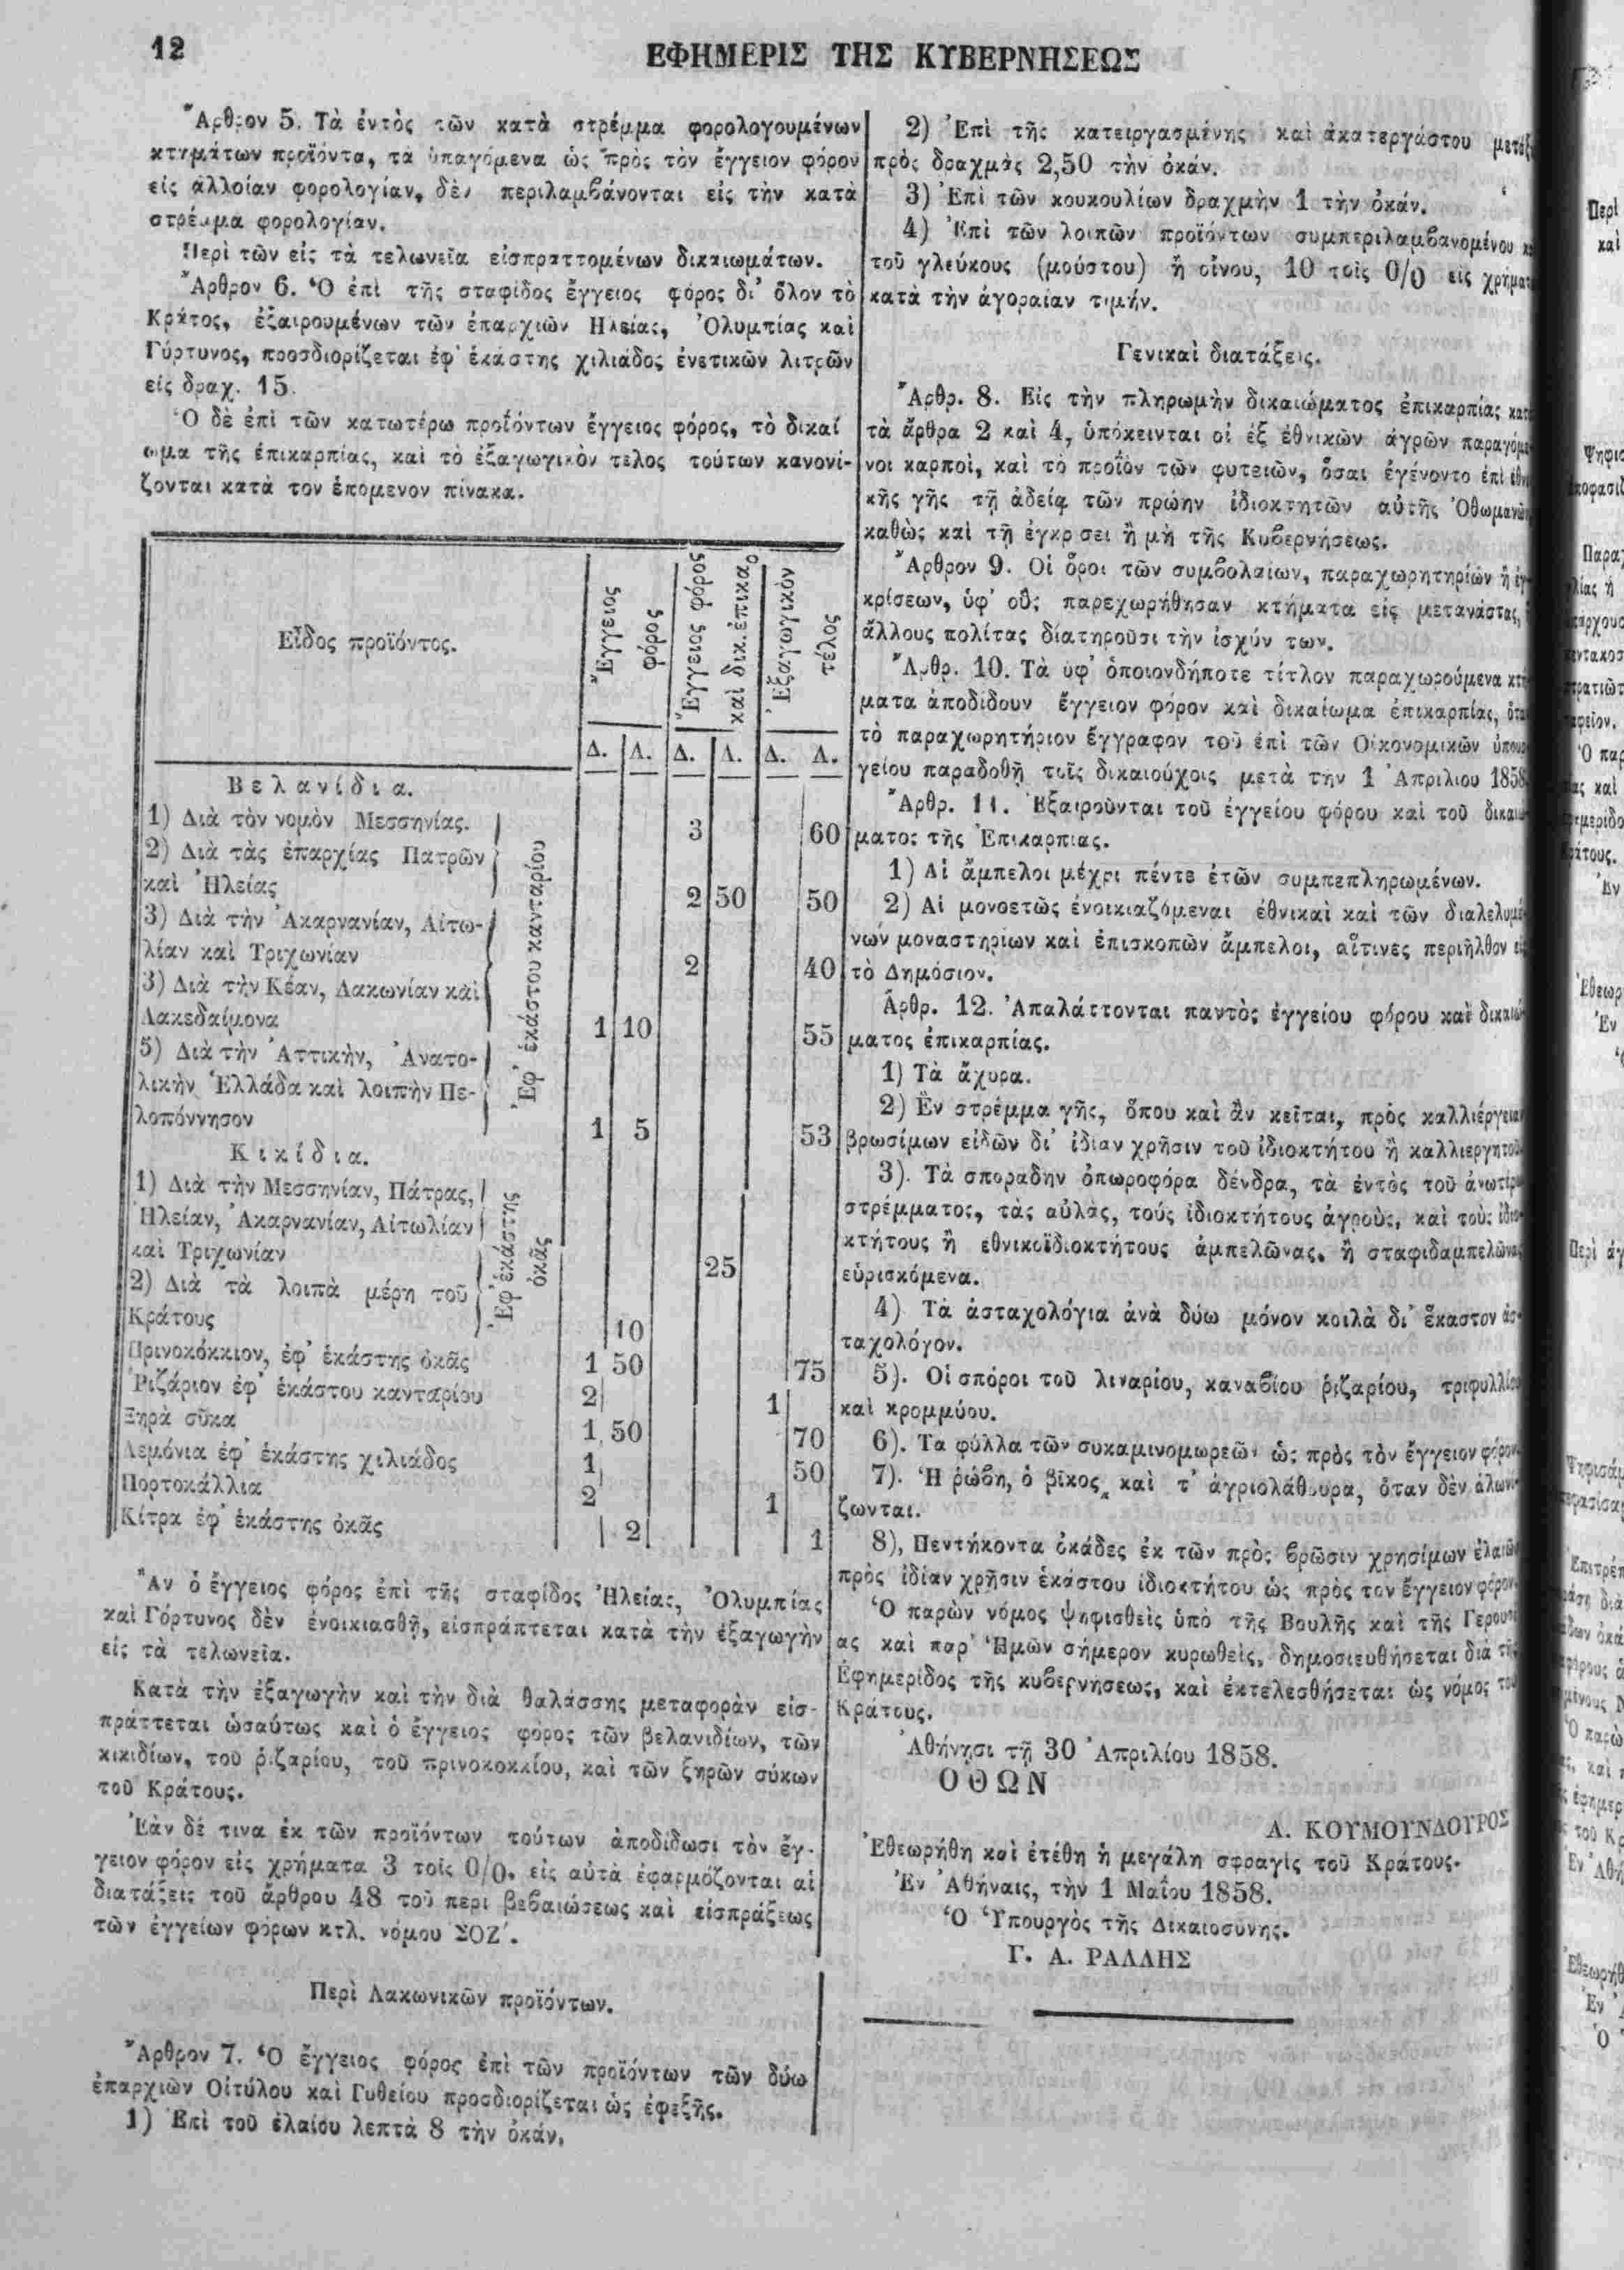 12
ΕΦΗΜΕΡΙΣ ΤΗΣ ΚΥΒΕΡΝΗΣΕΩΣ
Ἄρθρον 5. Τὰ ἐντὸς τῶν κατὰ στρέμμα φορολογουμένων
κτημάτων προϊόντα, τὰ ὑπαγόμενα ὡς πρὸς τὸν ἔγγειον φόρον
εἰς ἀλλοίαν φορολογίαν, δὲν περιλαμβάνονται εἰς τὴν κατὰ
στρέμμα φορολογίαν.
Περὶ τῶν εἰς τὰ τελωνεῖα εἰσπραττομένων δικαιωμάτων.
Ἄρθρον 6. Ὁ ἐπὶ τῆς σταφίδος ἔγγειος φόρος δι' ὅλον τὸ
Κράτος, ἐξαιρουμένων τῶν ἐπαρχιῶν Ηλείας, Ὀλυμπίας καὶ
Γόρτυνος, προσδιορίζεται ἐφ' ἑκάστης χιλιάδος ἐνετικῶν λιτρῶν
εἰς δραχ. 15.
Ὁ δὲ ἐπὶ τῶν κατωτέρω προϊόντων ἔγγειος φόρος, τὸ δικαί
ωμα τῆς ἐπικαρπίας, καὶ τὸ ἐξαγωγικὸν τέλος τούτων κανονί-
ζονται κατὰ τον ἑπόμενον πίνακα.
Εἶδος προϊόντος.
Ἔγγειος φόρος
Ἔγγειος φόρος καὶ δικ. ἐπικαρ
Ἐξαγωγικόν τέλος
Δ. Λ. Δ. Λ. Δ. Λ.
Βελανίδια.
1) Διὰ τὸν νομὸν Μεσσηνίας. 3 60
2) Διὰ τὰς ἐπαρχίας Πατρῶν
καὶ Ἠλείας 2 50 50
3) Διὰ τὴν Ἀκαρνανίαν, Αἰτω-
λίαν καὶ Τριχωνίαν 2 40
3) Διὰ τὴν Κέαν, Λακωνίαν καὶ
Λακεδαίμονα 1 10 55
5) Διὰ τὴν Ἀττικὴν, Ἀνατο-
λικὴν Ἑλλάδα καὶ λοιπὴν Πε-
λοπόννησον 1 5 53
Ἐφ' ἑκάστου κανταρίου
Κικίδια.
1) Διὰ τὴν Μεσσηνίαν, Πάτρας,
Ἠλείαν, Ἀκαρνανίαν, Αἰτωλίαν
καὶ Τριχωνίαν 25
2) Διὰ τὰ λοιπὰ μέρη τοῦ
Κράτους 10
Ἐφ' ἑκάστης ὀκᾶς
Πρινοκόκκιον, ἐφ' ἑκάστης ὀκᾶς 1 50 75
Ῥιζάριον ἐφ' ἑκάστου κανταρίου 2 1
Ξηρὰ σῦκα 1 50 70
Λεμόνια ἐφ' ἑκάστης χιλιάδος 1 50
Πορτοκάλλια 2 1
Κίτρα ἐφ' ἑκάστης ὀκᾶς 2 1
Ἂν ὁ ἔγγειος φόρος ἐπὶ τῆς σταφίδος Ἠλείας, Ὀλυμπίας
καὶ Γόρτυνος δὲν ἐνοικιασθῇ, εἰσπράττεται κατὰ τὴν ἐξαγωγὴν
εἰς τὰ τελωνεῖα.
Κατὰ τὴν ἐξαγωγὴν καὶ τὴν διὰ θαλάσσης μεταφορὰν εἰσ-
πράττεται ὡσαύτως καὶ ὁ ἔγγειος φόρος τῶν βελανιδίων, τῶν
κικιδίων, τοῦ ῥιζαρίου, τοῦ πρινοκοκκίου, καὶ τῶν ξηρῶν σύκων
τοῦ Κράτους.
Ἐὰν δέ τινα ἐκ τῶν προϊόντων τούτων ἀποδίδωσι τὸν ἔγ-
γειον φόρον εἰς χρήματα 3 τοῖς 0/0, εἰς αὐτὰ ἐφαρμόζονται αἱ
διατάξεις τοῦ ἄρθρου 48 τοῦ περὶ βεβαιώσεως καὶ εἰσπράξεως
τῶν ἐγγείων φόρων κτλ. νόμου ΣΟΖ΄.
Περὶ Λακωνικῶν προϊόντων.
Ἄρθρον 7. Ὁ ἔγγειος φόρος ἐπὶ τῶν προϊόντων τῶν δύω
ἐπαρχιῶν Οἰτύλου καὶ Γυθείου προσδιορίζεται ὡς ἐφεξῆς.
1) Ἐπὶ τοῦ ἐλαίου λεπτὰ 8 τὴν ὀκάν,
2) Ἐπὶ τῆς κατειργασμένης καὶ ἀκατεργάστου
πρὸς δραχμὰς 2,50 τὴν ὀκάν.
3) Ἐπὶ τῶν κουκουλίων δραχμὴν 1 τὴν ὀκάν.
4) Ἐπὶ τῶν λοιπῶν προϊόντων συμπεριλαμβανομένου
τοῦ γλεύκους (μούστου) ἢ οἴνου, 10 τοῖς 0/0 εἰς
κατὰ τὴν ἀγοραίαν τιμήν.
Γενικαὶ διατάξεις.
Ἄρθρ. 8. Εἰς τὴν πληρωμὴν δικαιώματος ἐπικαρπίας
τὰ ἄρθρα 2 καὶ 4, ὑπόκεινται οἱ ἐξ ἐθνικῶν ἀγρῶν παραγόμε
νοι καρποὶ, καὶ τὸ προϊὸν τῶν φυτειῶν, ὅσαι ἐγένοντο ἐπὶ
κῆς γῆς τῇ ἀδείᾳ τῶν πρώην ἰδιοκτητῶν αὐτῆς Ὀθωμανῶν
καθὼς καὶ τῇ ἐγκρίσει ἢ μὴ τῆς Κυβερνήσεως.
Ἄρθρον 9. Οἱ ὅροι τῶν συμβολαίων, παραχωρητηρίων ἢ ἐγ
κρίσεων, ὑφ' οὓς παρεχωρήθησαν κτήματα εἰς μετανάστας,
ἄλλους πολίτας διατηροῦσι τὴν ἰσχύν των.
Ἄρθρ. 10. Τὰ ὑφ' ὁποιονδήποτε τίτλον παραχωρούμενα κτή
ματα ἀποδίδουν ἔγγειον φόρον καὶ δικαίωμα ἐπικαρπίας,
τὸ παραχωρητήριον ἔγγραφον τοῦ ἐπὶ τῶν Οἰκονομικῶν ὑπουρ
γείου παραδοθῇ τοῖς δικαιούχοις μετὰ τὴν 1 Ἀπριλίου 1858
Ἄρθρ. 11. Ἐξαιροῦνται τοῦ ἐγγείου φόρου καὶ τοῦ δικαιώ
ματος τῆς Ἐπικαρπίας.
1) Αἱ ἄμπελοι μέχρι πέντε ἐτῶν συμπεπληρωμένων.
2) Αἱ μονοετῶς ἐνοικιαζόμεναι ἐθνικαὶ καὶ τῶν διαλελυμέ
νων μοναστηρίων καὶ ἐπισκοπῶν ἄμπελοι, αἵτινες περιῆλθον εἰς
τὸ Δημόσιον.
Ἄρθρ. 12. Ἀπαλάττονται παντὸς ἐγγείου φόρου καὶ δικαιώ
ματος ἐπικαρπίας.
1) Τὰ ἄχυρα.
2) Ἓν στρέμμα γῆς, ὅπου καὶ ἂν κεῖται, πρὸς καλλιέργειαν
βρωσίμων εἰδῶν δι' ἰδίαν χρῆσιν τοῦ ἰδιοκτήτου ἢ καλλιεργητοῦ
3). Τὰ σποραδην ὀπωροφόρα δένδρα, τὰ ἐντὸς τοῦ ἀνωτέρω
στρέμματος, τὰς αὐλὰς, τοὺς ἰδιοκτήτους ἀγροὺς, καὶ τοὺς ἰδιο-
κτήτους ἢ εθνικοϊδιοκτήτους ἀμπελῶνας, ἢ σταφιδαμπελῶνας
εὑρισκόμενα.
4) Τὰ ἀσταχολόγια ἀνὰ δύω μόνον κοιλὰ δι' ἕκαστον ἀσ-
ταχολόγον.
5). Οἱ σπόροι τοῦ λιναρίου, καναβίου ῥιζαρίου, τριφυλλίου
καὶ κρομμύου.
6). Τα φύλλα τῶν συκαμινομωρεῶν ὡς πρὸς τὸν ἔγγειον φόρον
7). Ἡ ῥώβη, ὁ βῖκος, καὶ τ' ἀγριολάθουρα, ὅταν δὲν ἁλωνί-
ζωνται.
8), Πεντήκοντα ὀκάδες ἐκ τῶν πρὸς βρῶσιν χρησίμων ἐλαιῶν
πρὸς ἰδίαν χρῆσιν ἑκάστου ἰδιοκτήτου ὡς πρὸς τον ἔγγειον φόρον
Ὁ παρὼν νόμος ψηφισθεὶς ὑπὸ τῆς Βουλῆς καὶ τῆς Γερουσί
ας καὶ παρ' Ἡμῶν σήμερον κυρωθεὶς, δημοσιευθήσεται διὰ τῆς
Ἐφημερίδος τῆς κυβερνήσεως, καὶ ἐκτελεσθήσεται ὡς νόμος τοῦ
Κράτους.
Ἀθήνησι τῇ 30 Ἀπριλίου 1858.
ΟΘΩΝ
Α. ΚΟΥΜΟΥΝΔΟΥΡΟΣ
Ἐθεωρήθη καὶ ἐτέθη ἡ μεγάλη σφραγὶς τοῦ Κράτους.
Ἐν Ἀθήναις, τὴν 1 Μαΐου 1858.
Ὁ Ὑπουργὸς τῆς Δικαιοσύνης.
Γ. Α. ΡΑΛΛΗΣ